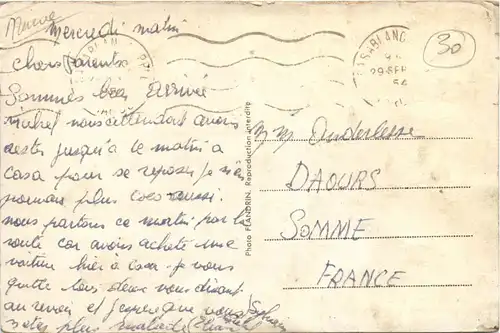 Maroc
Mercredi matin
Chers parents
Sommes bien arrivés
michel nous attendait avons
restés jusqu'à ce matin a
casa pour se reposer je n'en
pouvais plus coco aussi.
nous partons ce matin par la
route car avons acheté une
voiture hier à casa. je vous
quitte tous deux vous disant
au revoir et j'espère que vous
n'etes plus malade
30
CASABLANCA
29 SEP
Photo FLANDRIN. Reproduction interdite
DAOURS
SOMME
FRANCE